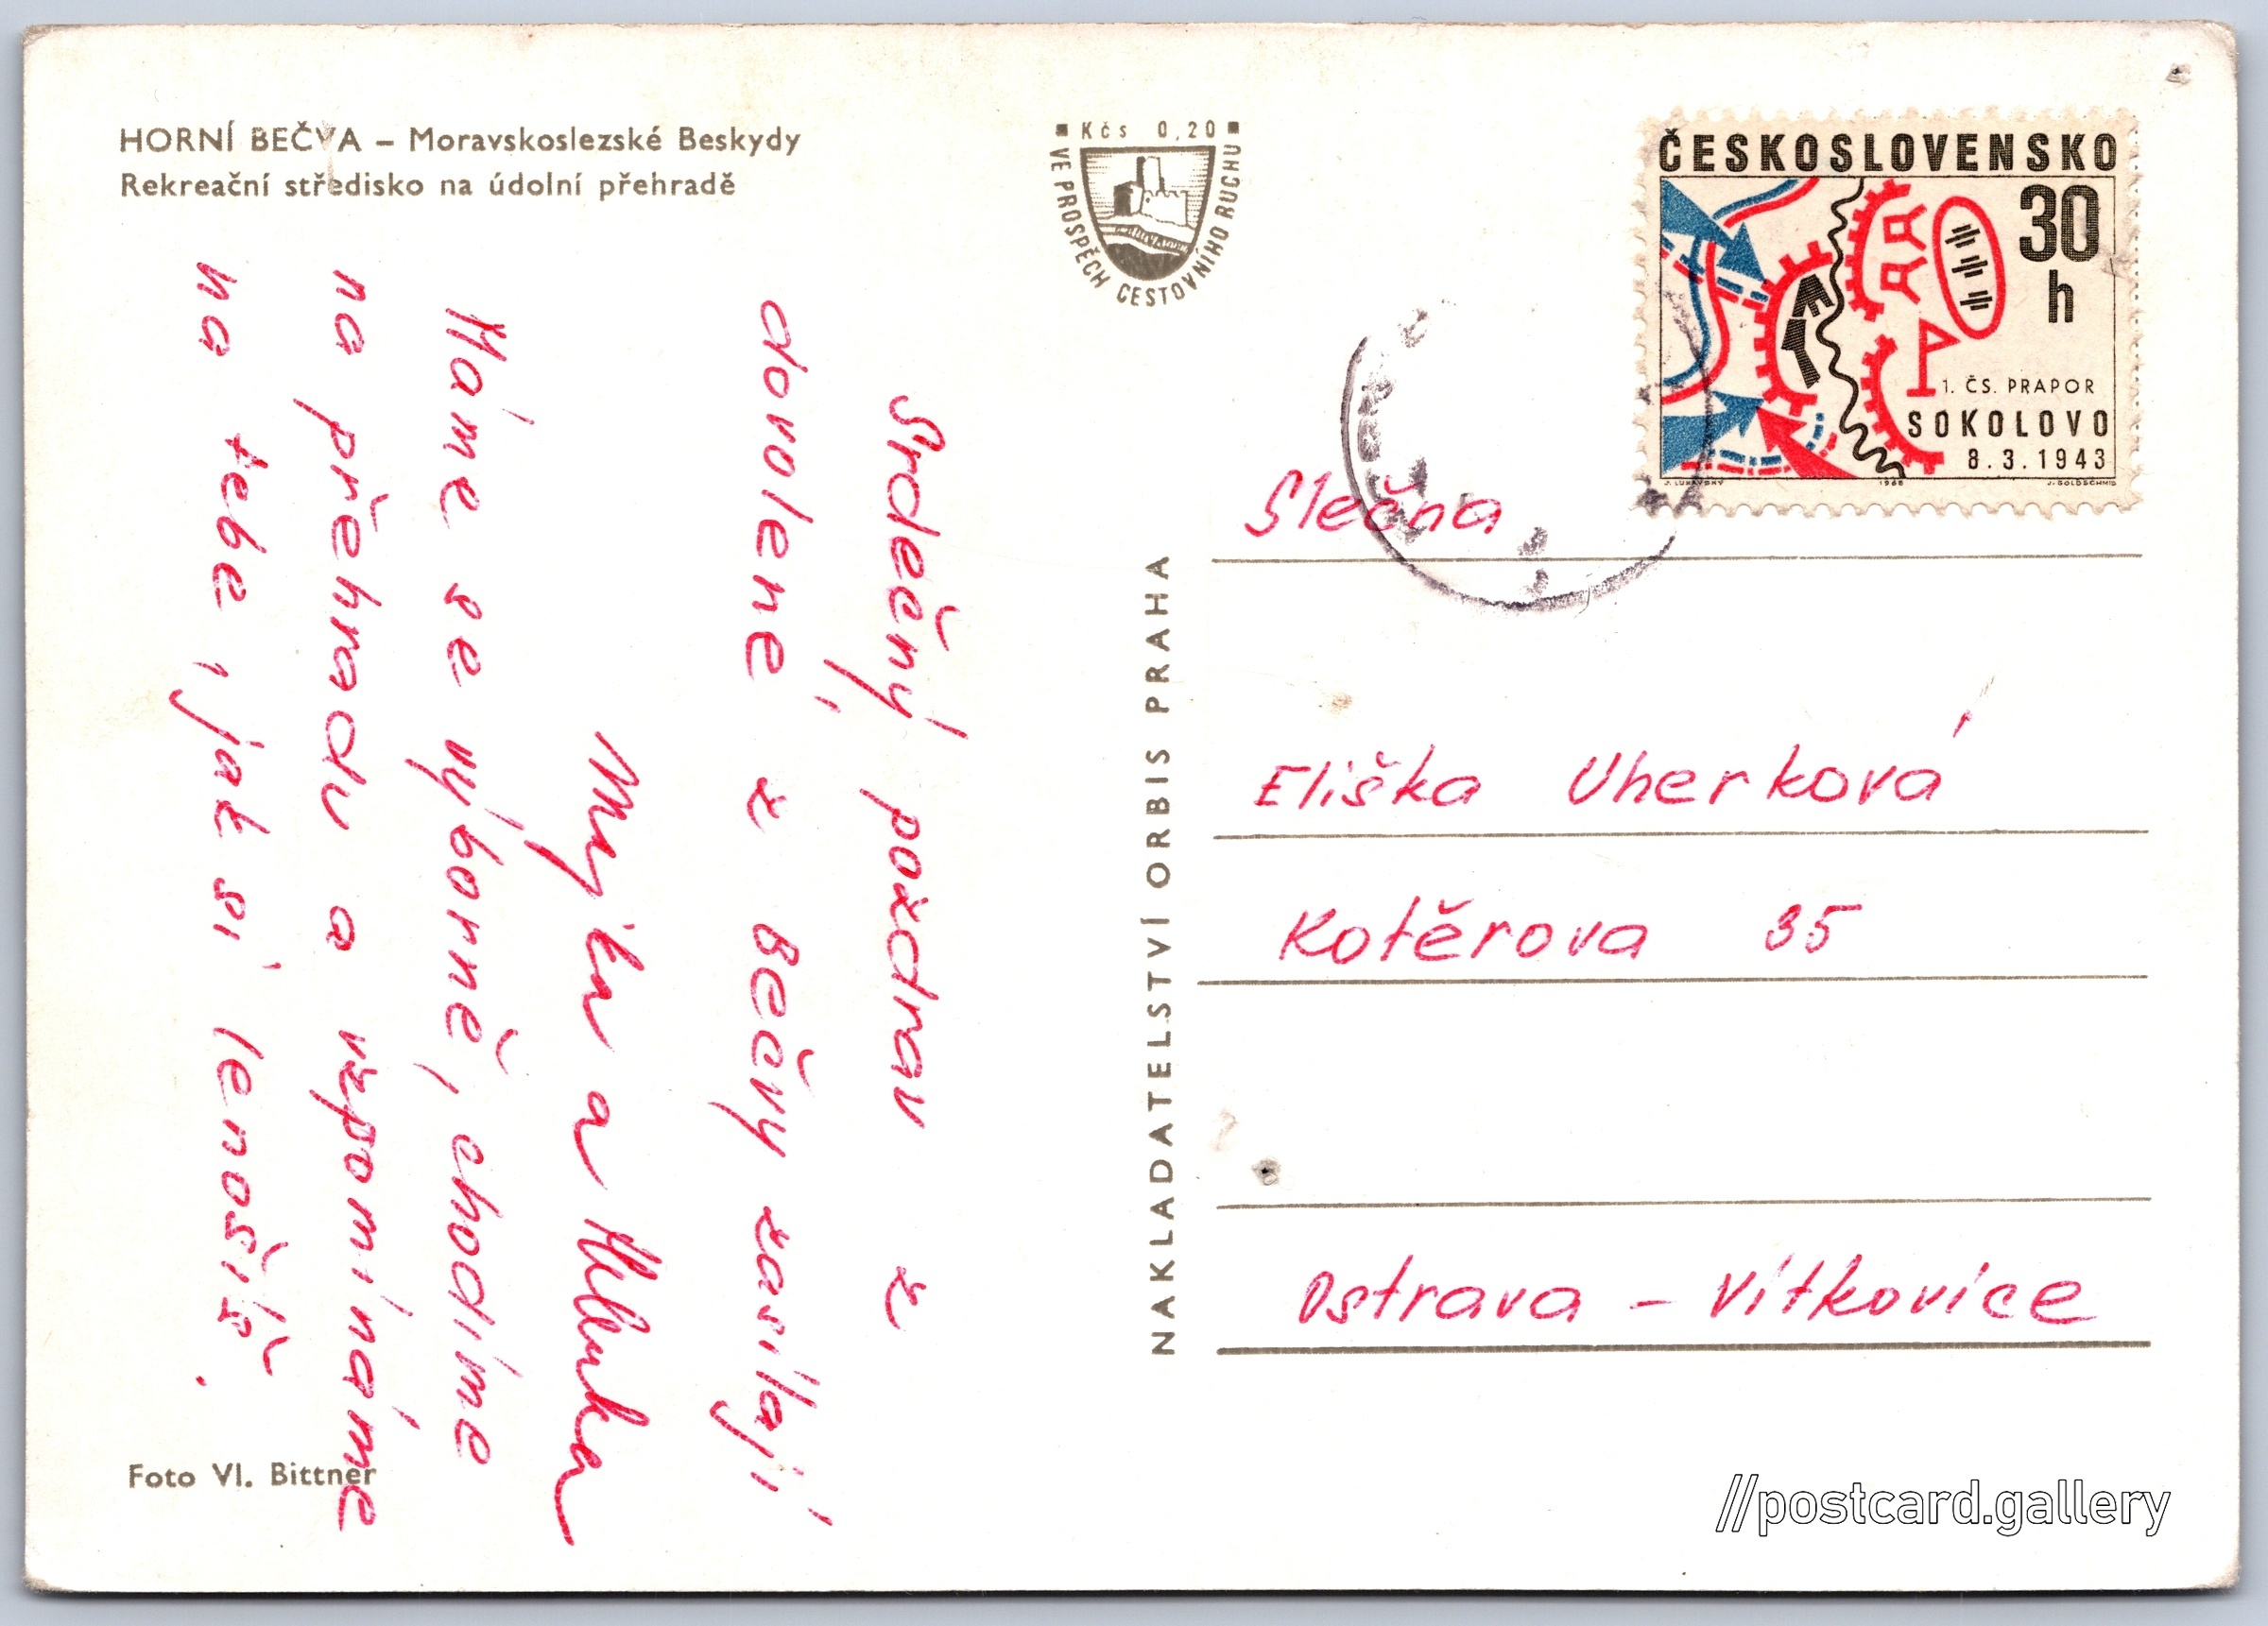 HORNÍ BEČVA – Moravskoslezské Beskydy
Rekreační středisko na údolní přehradě
Kčs 0,20
VE PROSPĚCH CESTOVNÍHO RUCHU
ČESKOSLOVENSKO
30
h
1. ČS. PRAPOR
SOKOLOVO
8.3.1943
J. LUKAVSKÝ 1968 J. GOLDSCHMID
Srdečný pozdrav z
dovolené z Bečvy zasílají
a
Máme se výborně, chodíme
na přehradu a vzpomínáme
na tebe, jak si lenošíš.
Foto Vl. Bittner
NAKLADATELSTVÍ ORBIS PRAHA
Slečna
Eliška Uherková
Kotěrova 35
Ostrava – Vítkovice
//postcard.gallery